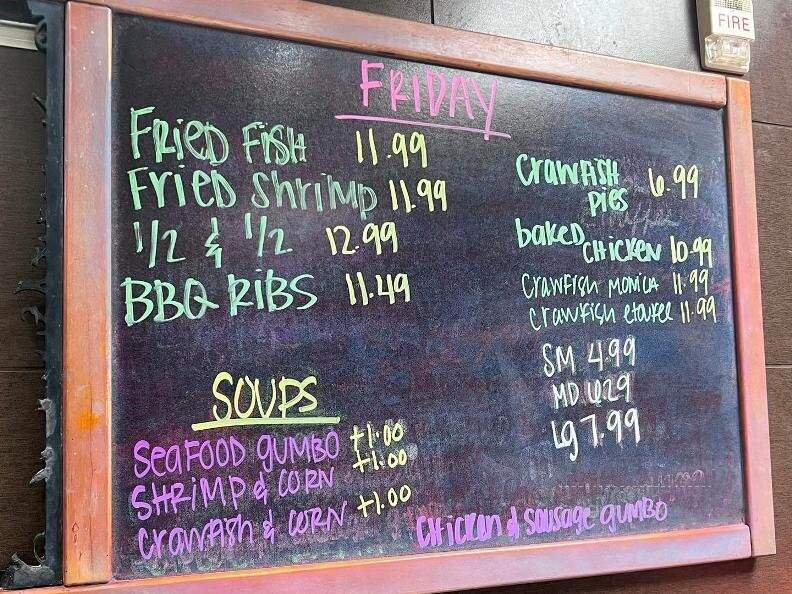 FIRE
FRIDAY
FRIED FISH 11.99
FRIED SHRIMP 11.99
1/2 & 1/2 12.99
BBQ RIBS 11.49
CRAWFISH
PIES 6.99
baked
CHICKEN 10.99
CRAWFISH MONICA 11.99
CRAWFISH ETOUFEE 11.99
SM 4.99
MD 6.29
LG 7.99
SOUPS
SEAFOOD GUMBO +1.00
SHRIMP & CORN +1.00
CRAWFISH & CORN +1.00
CHICKEN & SAUSAGE GUMBO